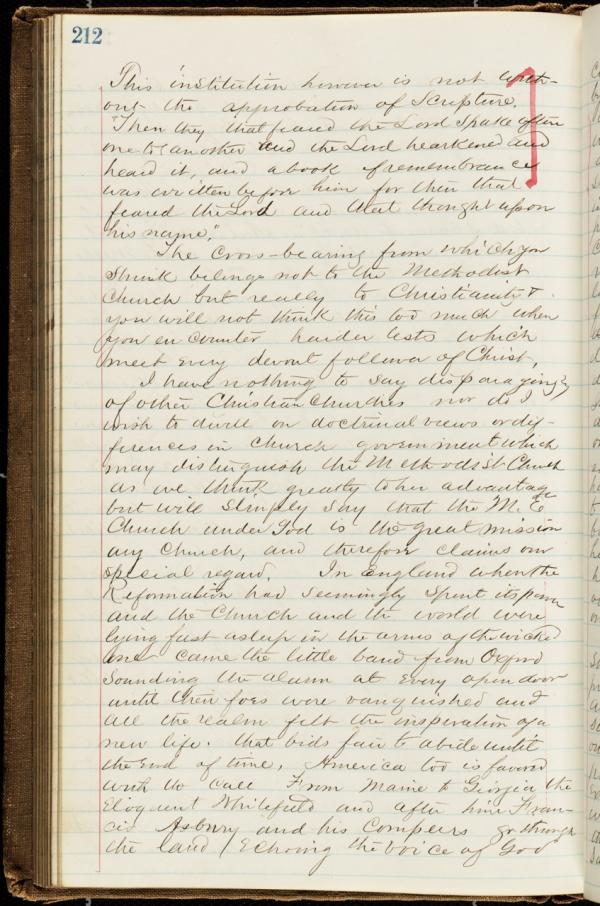 212
This institution however is not with-
out the approbation of Scripture.
"Then they that feared the Lord Spake often
one to another and the Lord hearkened and
heard it, and a book of remembrance
was written before him for them that
feared the Lord and that thought upon
his name."
The Cross-bearing from which you
shrink belongs not to the Methodist
Church but really to Christianity &
you will not think this too much when
you encounter harder tests which
meet every devout follower of Christ.
I have nothing to say disparagingly
of other Christian Churches nor do I
wish to dwell on doctrinal views or dif-
ferences in Church government which
may distinguish the Methodist Church
as we think greatly to her advantage
but will simply say that the M. E.
Church under God is the great mission
ary Church, and therefore claims our
special regard. In England when the
Reformation had seemingly spent its power
and the Church and the world were
lying fast asleep in the arms of the wicked
one came the little band from Oxford
Sounding the alarm at every open door
until their foes were vanquished and
all the realm felt the inspiration of a
new life. that bids fair to abide until
the end of time. America too is favored
with the call From Maine to Georgia the
Eloquent Whitefield and after him Fran-
cis Asbury and his Compeers go through
the land Echoing the voice of God